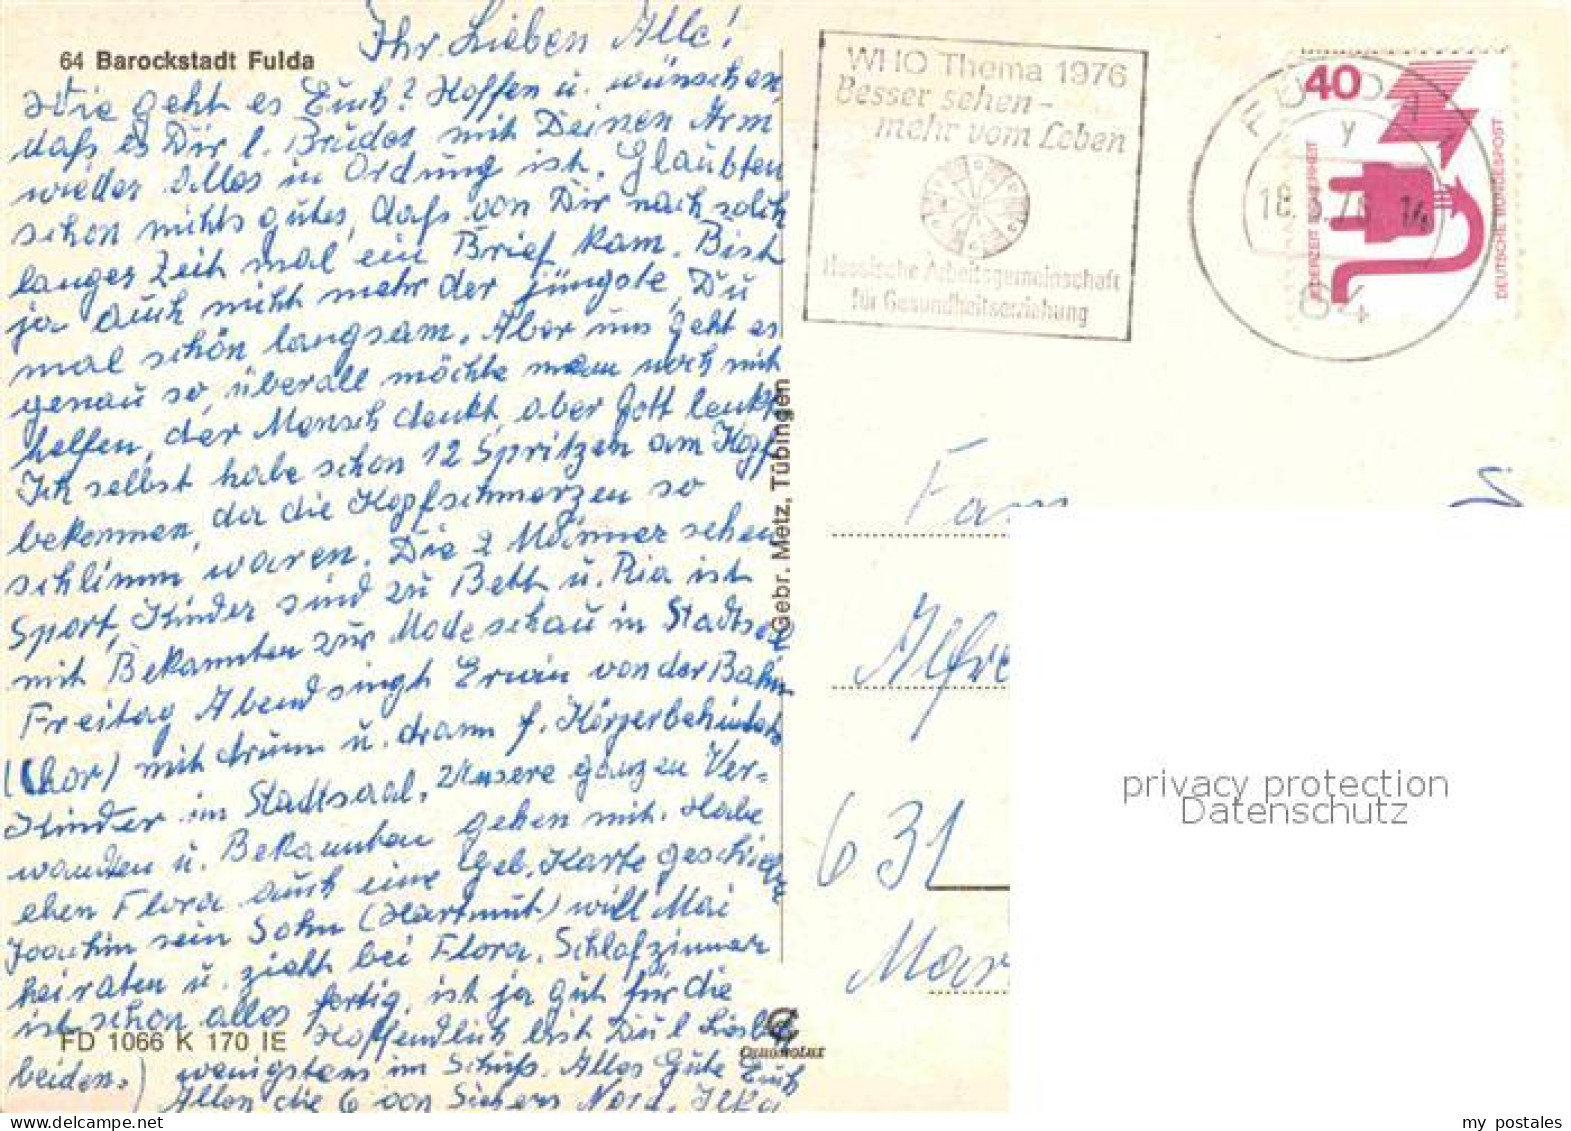 Ihr Lieben Alle!
64 Barockstadt Fulda
Wie geht es Euch? Hoffen u. wünschen,
daß es Dir l. Bruder mit Deinen Arm
wieder Alles in Ordung ist. Glaubten
schon nichts gutes, daß von Dir nach solch
langer Zeit mal ein Brief kam. Bist
ja auch nicht mehr der jüngste, Du
mal schön langsam. Aber uns geht es
genau so, überall möchte man noch mit
helfen, der Mensch denkt, aber Gott lenkt
Ich selbst habe schon 12 Spritzen am Kopf
bekommen, da die Kopfschmerzen so
schlimm waren. Die 2 Männer sehen
Sport, Kinder sind zu Bett u. Ria ist
mit Bekannten zur Modeschau in Stadtsaal
Freitag Abend singt Erwin von der Bahn
(Chor) mit drum u. dram f. Körperbehinderte
Kinder im Stadtsaal. Unsere ganzen Ver-
wandten u. Bekannten gehen mit. Habe
eben Flora auch eine Geb. Karte geschickt
Joachim sein Sohn (Hartmut) will Mai
heiraten u. zieht bei Flora. Schlafzimmer
ist schon alles fertig, ist ja gut für die
beiden.) Hoffendlich bist Du l
FD 1066 K 170 IE
wenigstens im Schuß. Alles Gute Euch
Allen die 6 von
Gebr. Metz, Tübingen
WHO Thema 1976
Besser sehen -
mehr vom Leben
Hessische Arbeitsgemeinschaft
für Gesundheitserziehung
FULDA
y
64
40
JEDERZEIT SICHERHEIT
DEUTSCHE BUNDESPOST
Fam
Alfre
631
Mar
privacy protection
Datenschutz
my postales